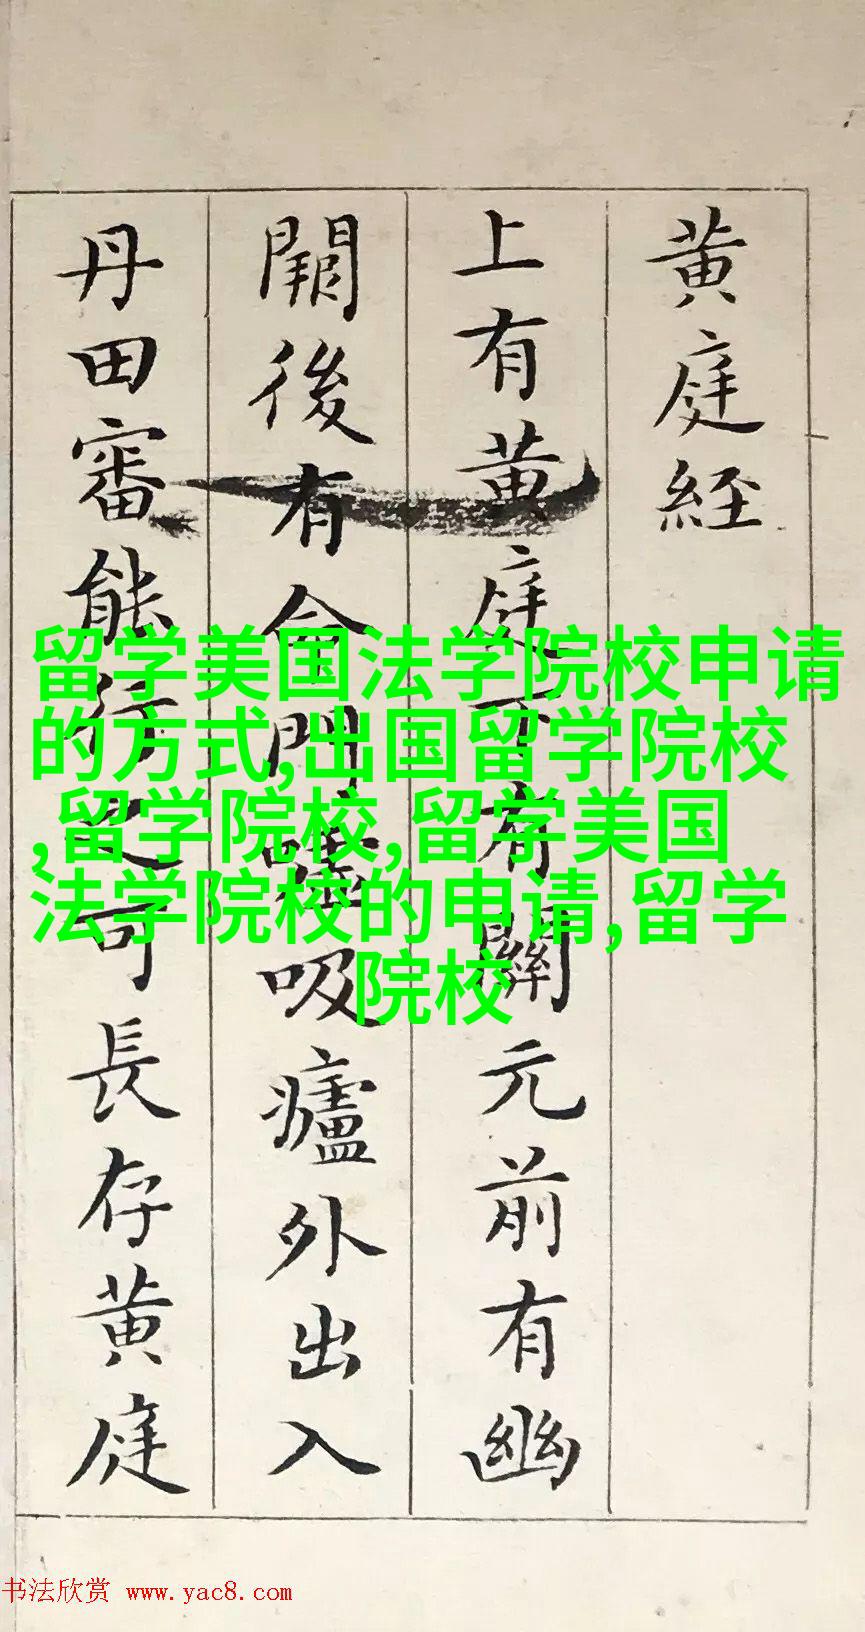 黄庭経
上有黄庭下有關元前有幽
闕後有命門嘘吸廬外出入
丹田審能行之可長存黄庭
留学美国法学院校申请
的方式,出国留学院校
,留学院校,留学美国
法学院校的申请,留学
院校
书法欣赏 www.yac8.com